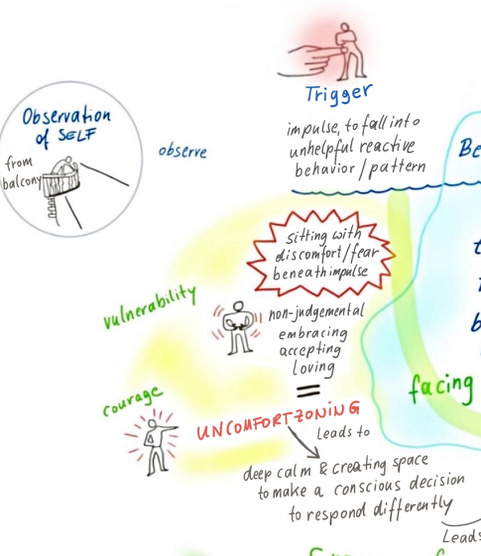 Trigger
impulse, to fall into
unhelpful reactive
behavior / pattern
Observation
of SELF
from
balcony
observe
Be
sitting with
discomfort/fear
beneath impulse
vulnerability
non-judgemental
embracing
accepting
loving
=
courage
facing
UNCOMFORTZONING
leads to
deep calm & creating space
to make a conscious decision
to respond differently
Leads